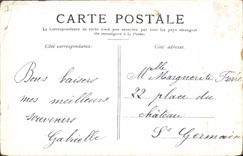 CARTE POSTALE
La Correspondance au recto n'est pas acceptée par tous les pays étrangers
(Se renseigner à la Poste)
Côté correspondance.
Côté adresse.
Bons baisers
mes meilleurs
souvenirs
Gabrielle
Mlle Marguerite
22 place du
château
St Germain